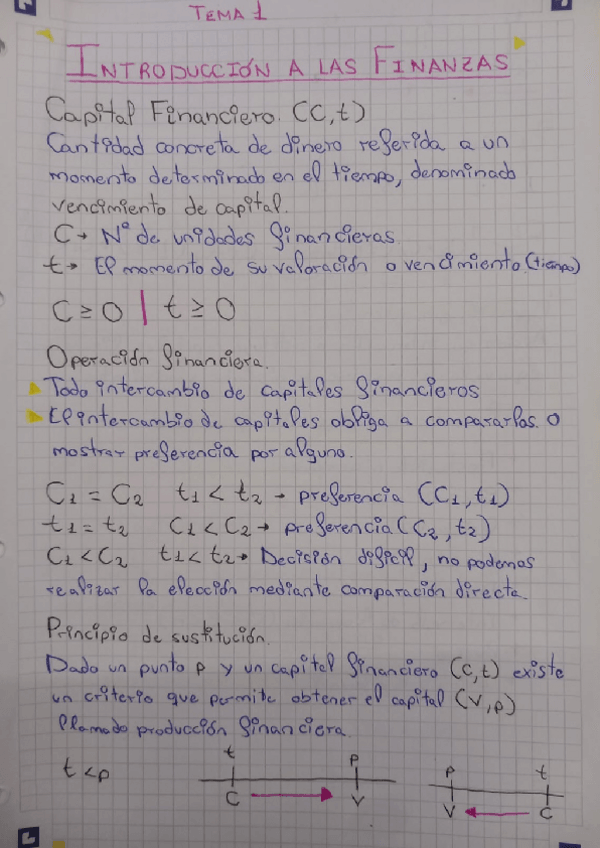 TEMA 1
INTRODUCCIÓN A LAS FINANZAS
Capital Financiero. (C, t)
Cantidad concreta de dinero referida a un
momento determinado en el tiempo, denominado
vencimiento de capital.
C→ Nº de unidades financieras
t→ El momento de su valoración o vencimiento. (tiempo)
C ≥ 0 | t ≥ 0
Operación financiera.
Todo intercambio de capitales financieros
El intercambio de capitales obliga a compararlos o
mostrar preferencia por alguno.
C1 = C2 t1 < t2 → preferencia (C1, t1)
t1 = t2 C1 < C2 → preferencia (C2, t2)
C1 < C2 t1 < t2 → Decisión dificil, no podemos
realizar la elección mediante comparación directa.
Principio de sustitución.
Dado un punto p y un capital financiero (C, t) existe
un criterio que permite obtener el capital (V, p)
llamado producción financiera.
t < p t p p t
C V V C